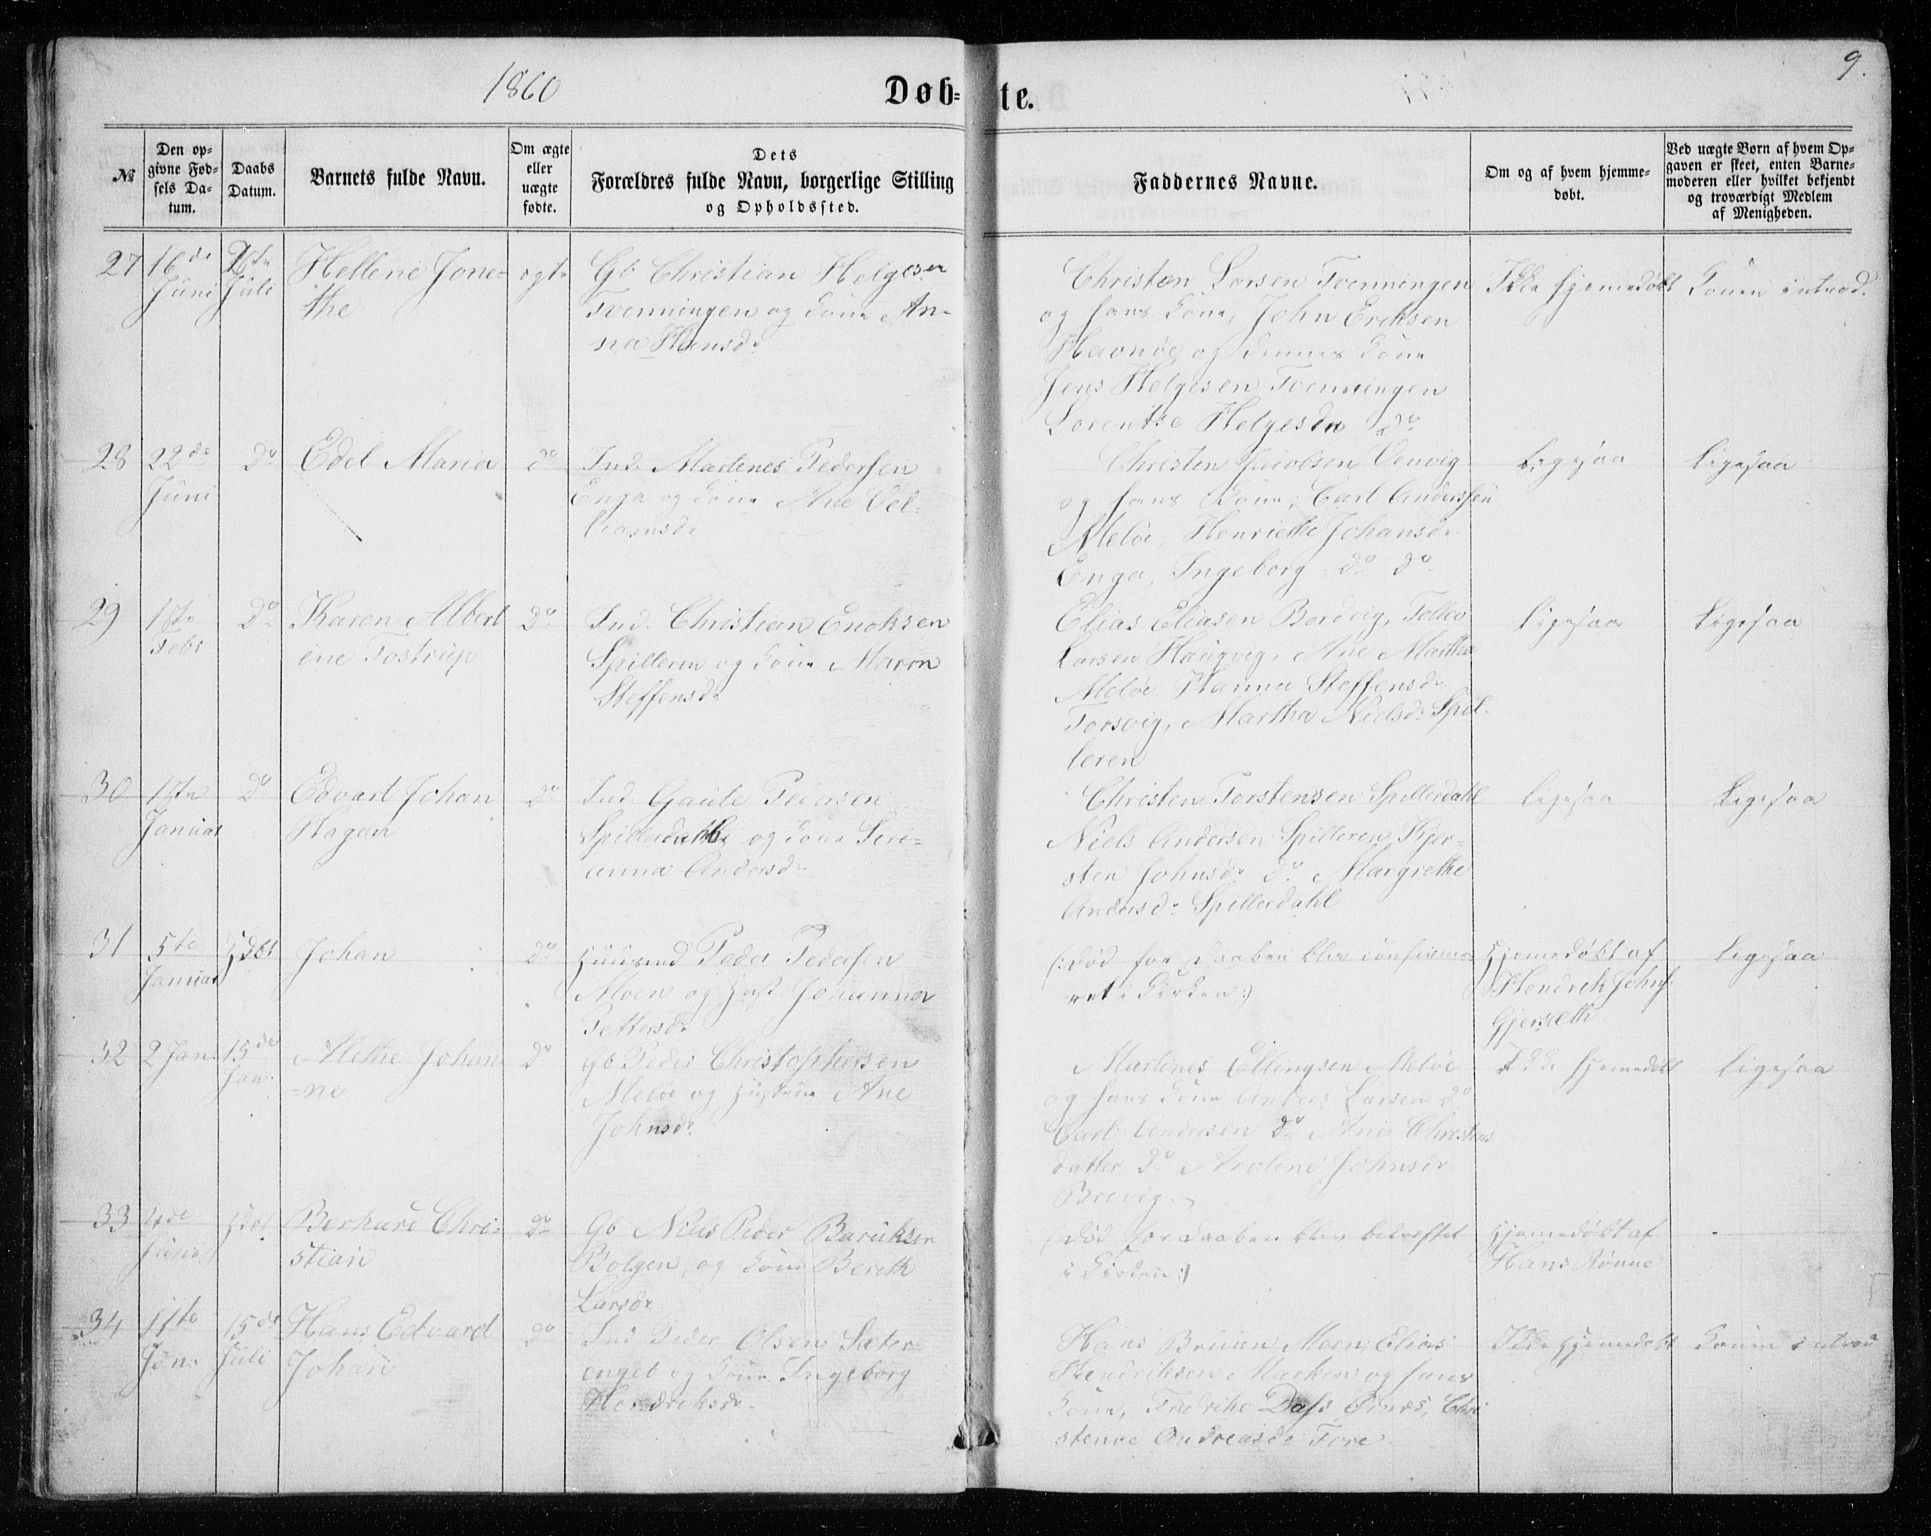 1860
Døb-
te.
9.
№
Den op-
givne Fød-
sels Da-
tum.
Daabs
Datum.
Barnets fulde Navn.
Om ægte
eller
uægte
fødte.
Dets
Forældres fulde Navn, borgerlige Stilling
og Opholdssted.
Faddernes Navne.
Om og af hvem hjemme-
døbt.
Ved uægte Børn af hvem Op-
gaven er skeet, enten Barne-
moderen eller hvilket bekjendt
og troværdigt Medlem
af Menigheden.
27
16de
Juni
Juli
Hellene Jone-
the
egte
Gb Christian Helgesen
Tvenningen og Kone An-
na Hansdr
Christen Larsen Tvenningen
og hans Kone, John Eriksen
Havnøe og dennes Kone
Jens Helgesen Tvenningen
Lorentse Helgesdr do
Ikke hjemedøbt
Konen introd.
28
22de
Juni
do
Edel Maria
do
Ind. Martines Pedersen
Enga og Kone Ane
Christen Jacobsen
og hans Kone, Carl Anderssen
Meløe, Henriethe Johansdr
Enga, Ingeborg do do
Ligesaa
Ligesaa
29
1ste
Febr
do
Karen Albert
ine Tostrup
do
Ind. Christian Enoksen
Spilleren og Kone Maren
Steffensdr
Elias Eliasen Bordvig, Tollev
Larsen Haugvig, Ane Martha
Meløe, Hanna Steffensdr
Torsvig, Martha Nielsdr Spil-
leren
Ligesaa
Ligesaa
30
1ste
Januar
do
Edvart Johan
Hagen
do
Ind. Gaute Pedersen
Spillerdahl og Kone Seri-
anna Andersdr
Christen Torstensen Spillerdahl
Niels Andersen Spilleren, Kjer-
sten Johnsdr do Margrethe
Andersdr Spillerdahl
Ligesaa
Ligesaa
31
5te
Januar
Hdbt
Johan
do
Huusmd Peder Pedersen
Moen og Hust Johanna
Pettersdr
(:død før Daaben blev confirme-
ret i Kirken:)
Hjemedøbt af
Hendrik Johns.
Gjersæth
Ligesaa
32
2 Jan.
15de
Jan.
Alethe Johan
=ne
do
Gb Peder Christophersen
Meløe og Hustrue Ane
Johnsdr
Martines Ellingsen Meløe
og hans Kone Anders Larsen do
Carl Andersen do Ane Christens
datter do Aroline Johnsdr
Brevig.
Ikke hjemedøbt
Ligesaa
33
4de
Hdbt
Berhard Chri-
stian
do
Gb Niels Peder Baruksen
Bolgen, og Kone Bereth
Larsdr
(død før Daaben blev bekræftet
i Kirken:)
Hjemedøbt af
Hans Rønne
34
11te
Jun.
15de
Juli
Hans Edvard
Johan
do
Ind Peder Olsen Sæter-
enget og Kone Ingeborg
Hendriksdr
Hans Bruun Moen, Elias
Hendriksen Marken og hans
Kone, Fredrike Dass Ørnes, Chri
stense Andreasdr Fore
Ikke hjemedøbt
Konen introd